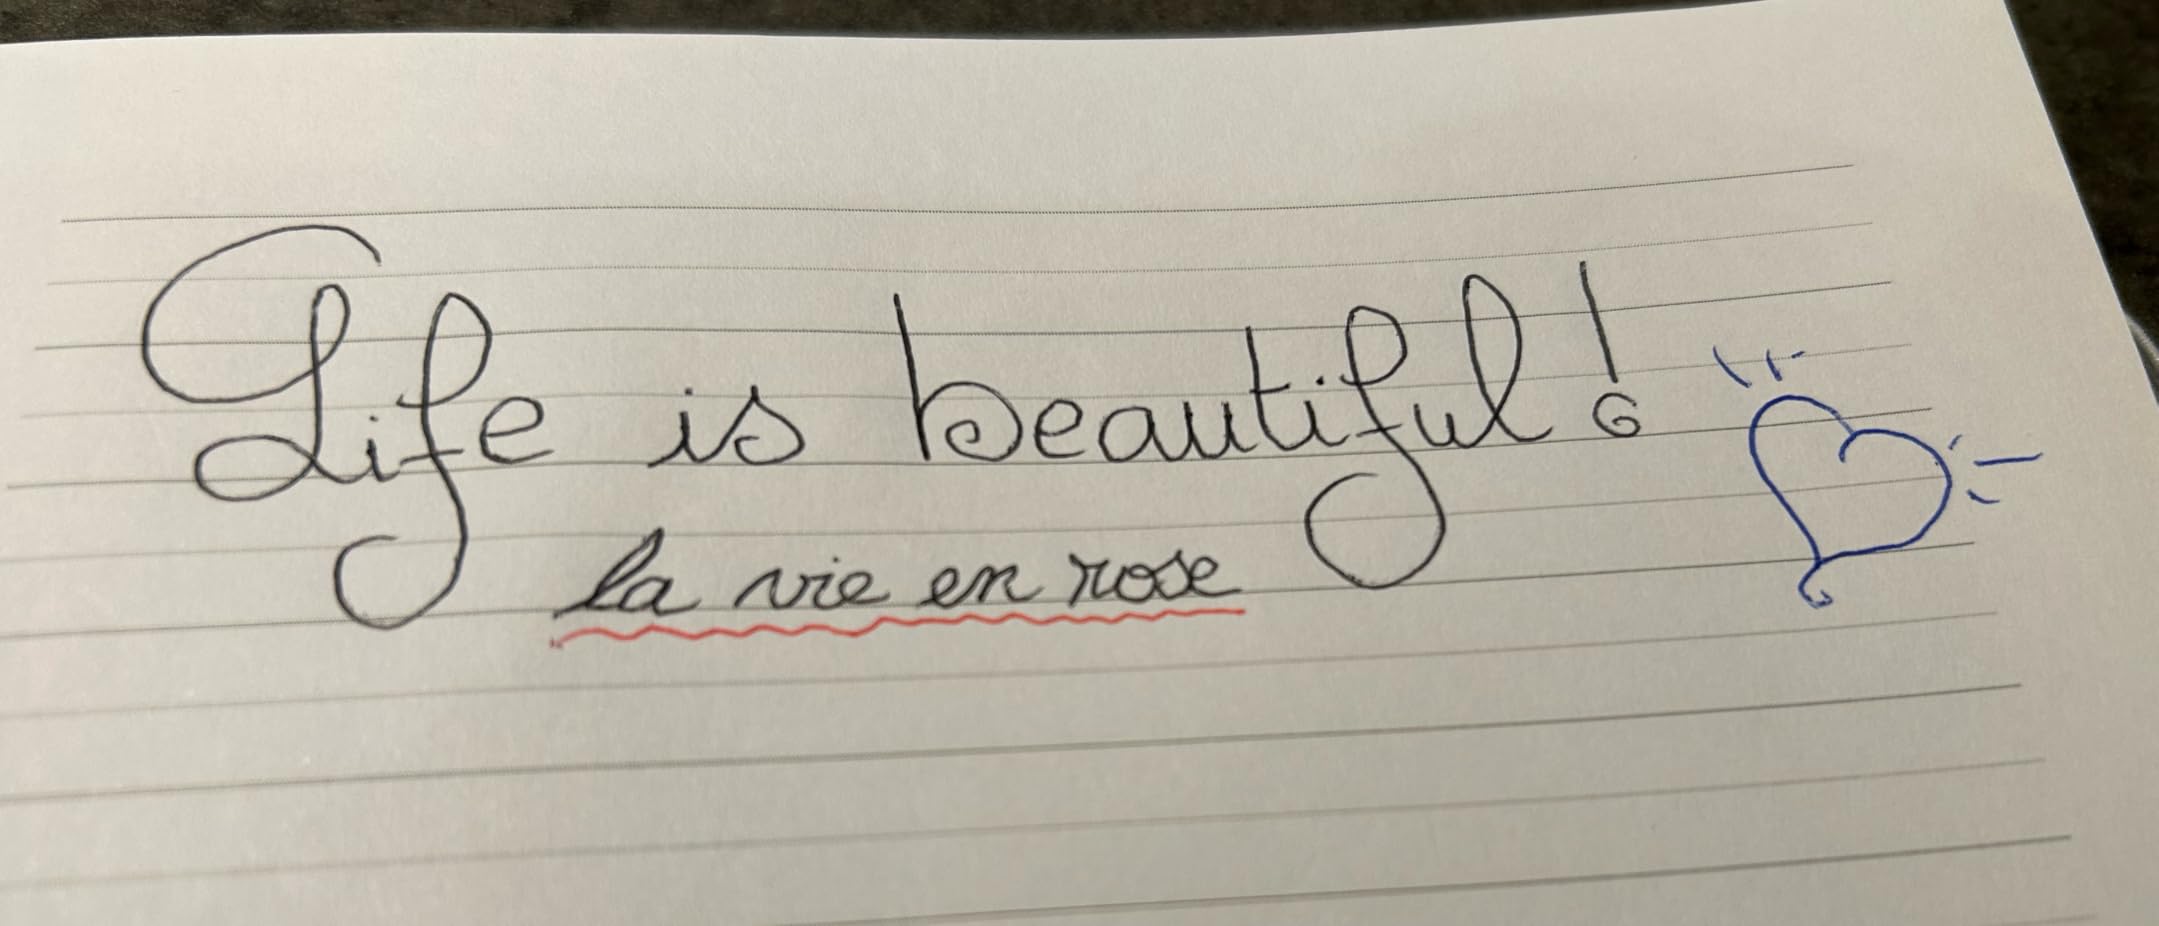 Life is beautiful!
la vie en rose